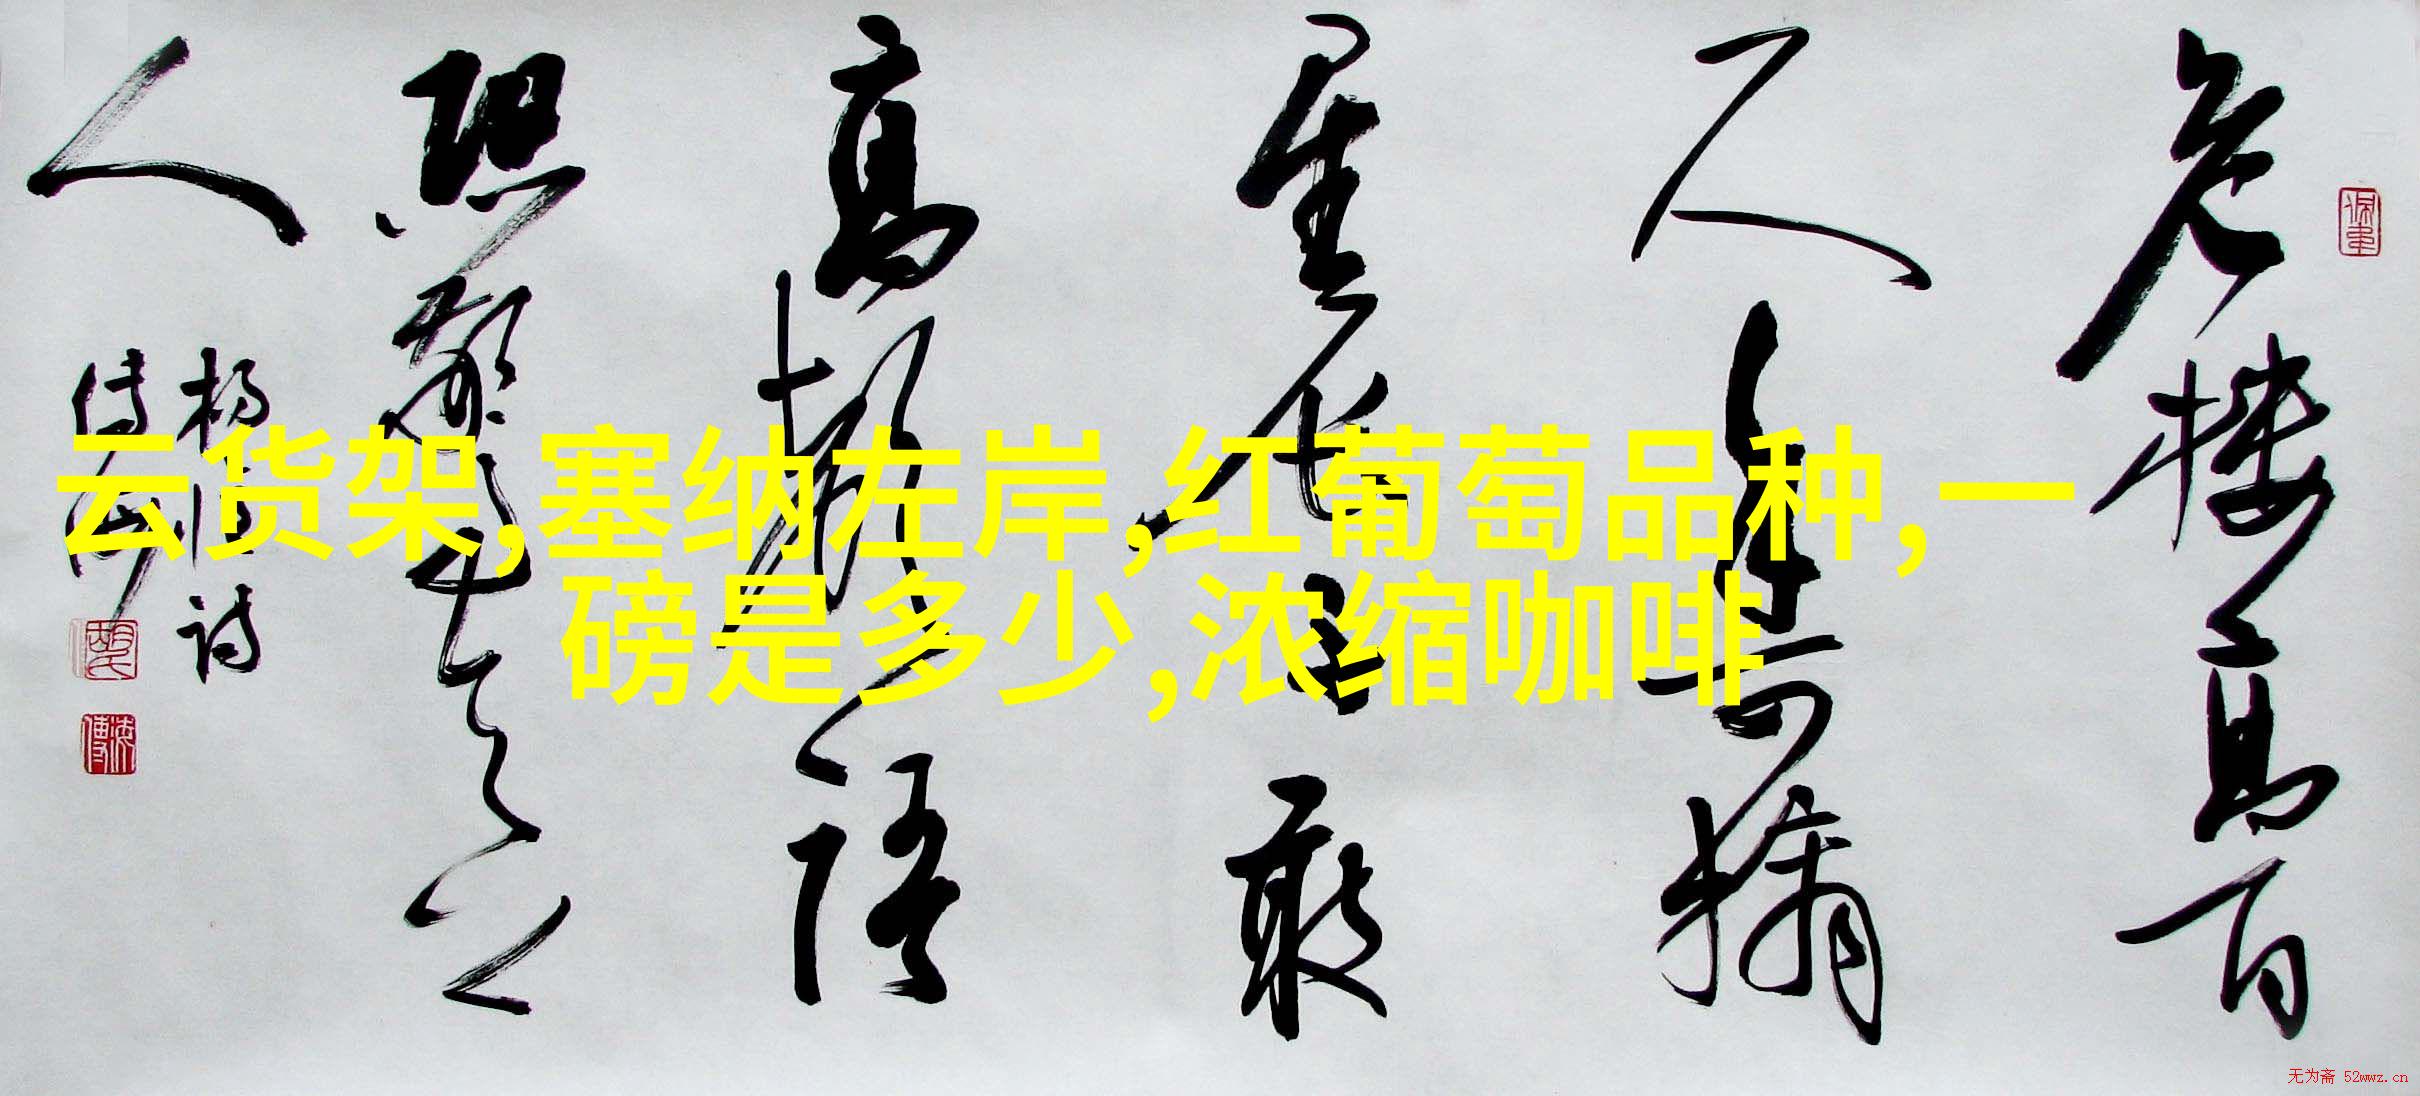 危楼高百
尺手可摘
星辰不敢
高声语
恐惊天上
人
杨忆诗
傅山
云货架,塞纳左岸,红葡萄品种,一
磅是多少,浓缩咖啡
无为斋 52wwz.cn